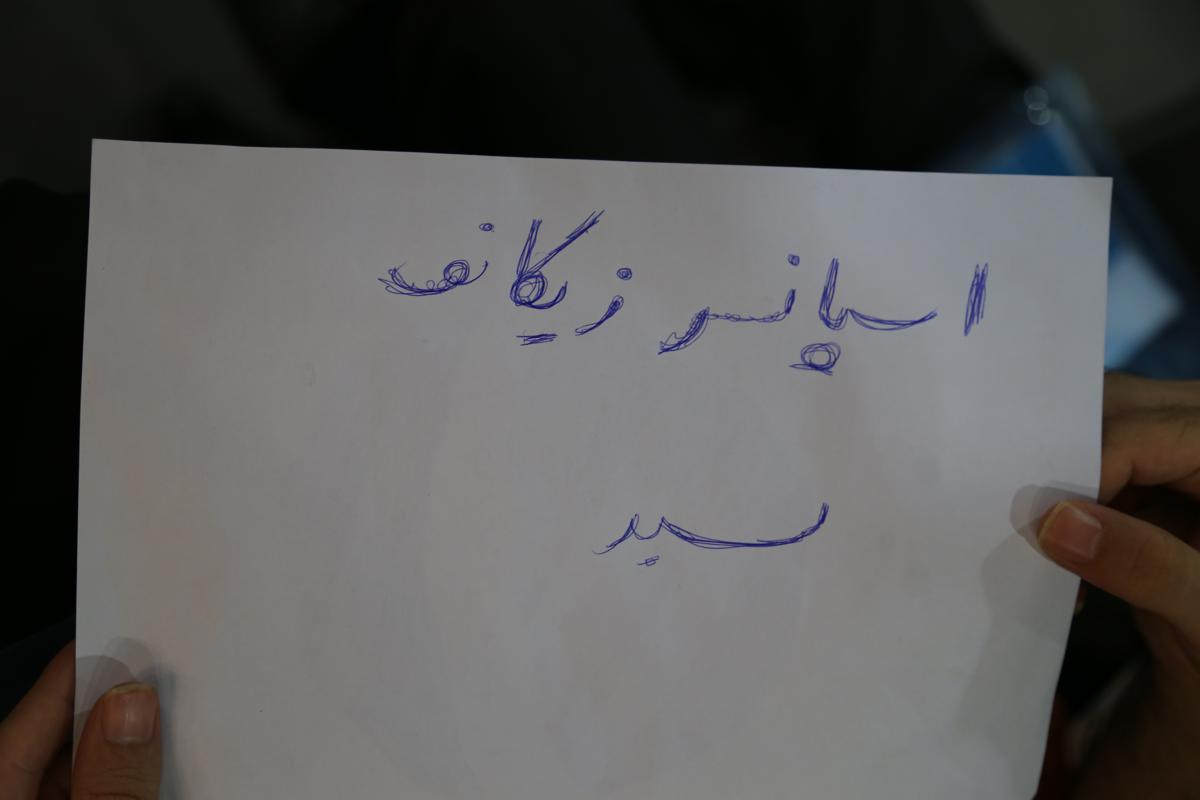 اسپانسر زیگانف
سید